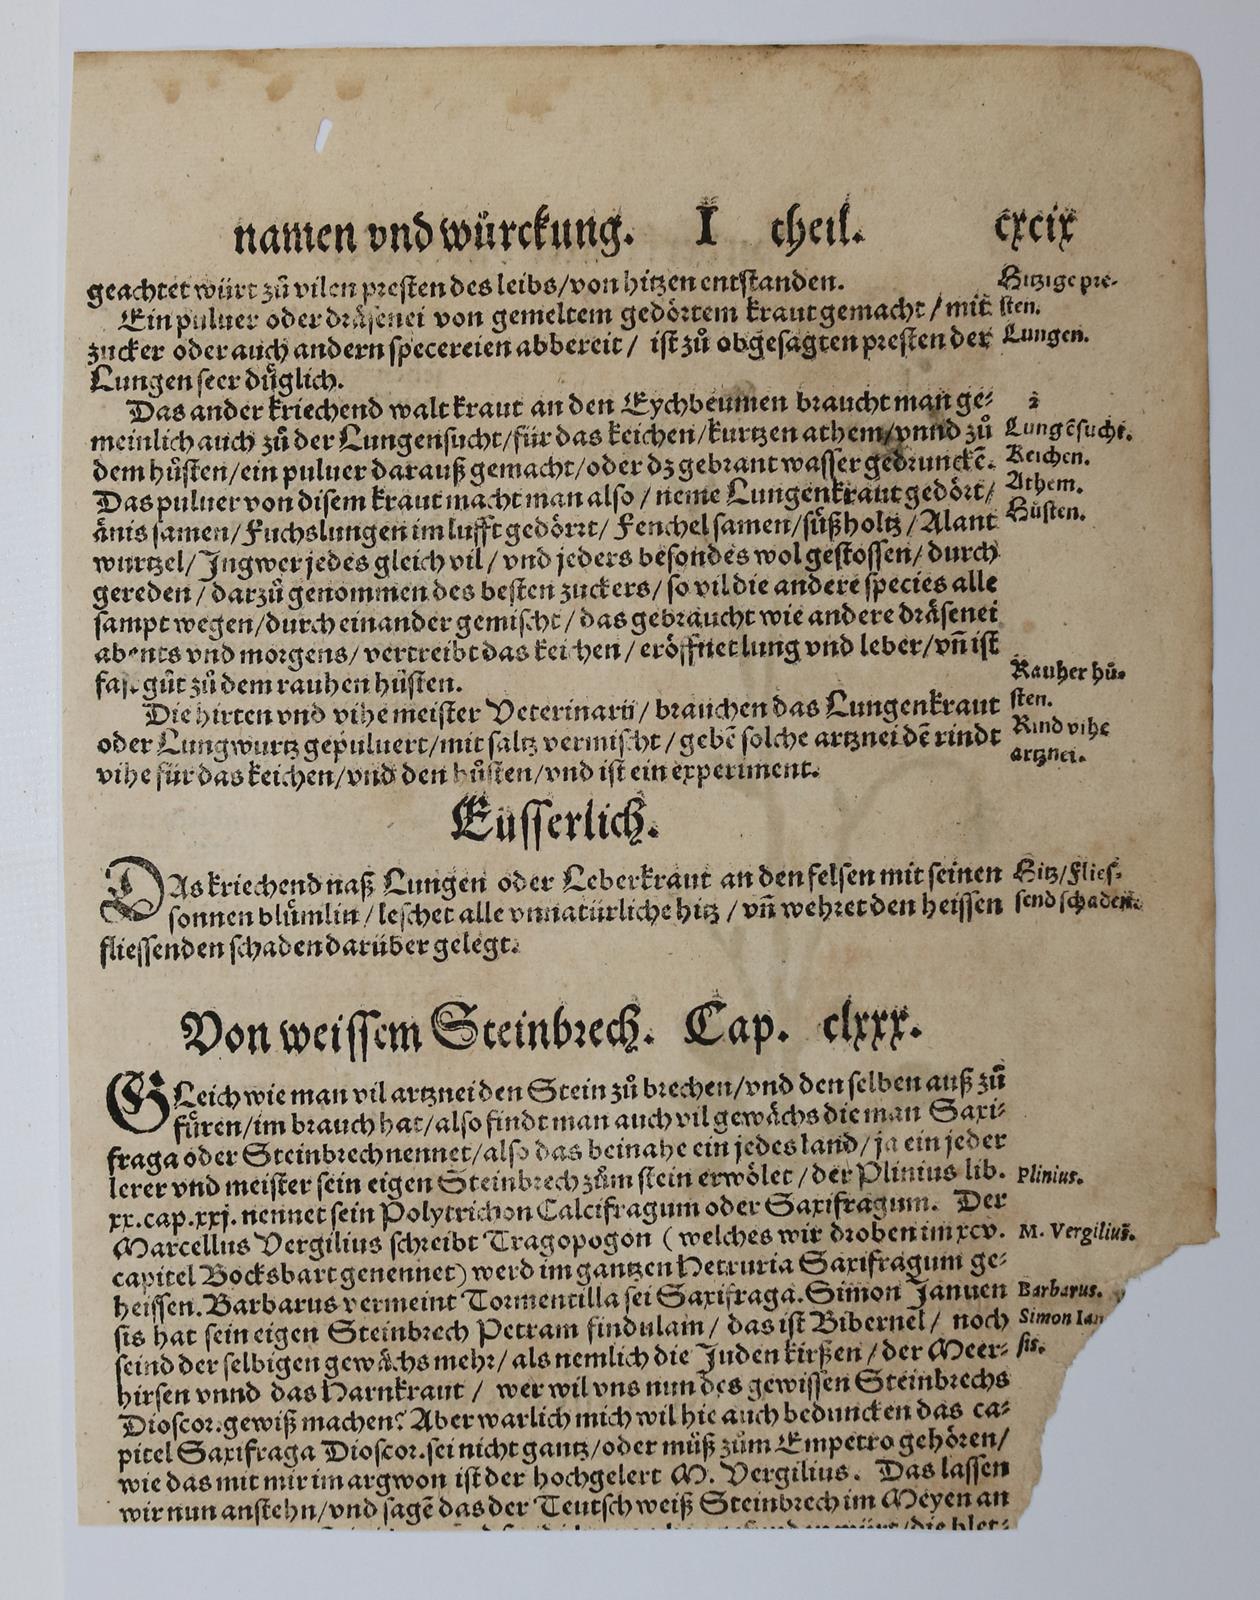 namen vnd wuͤrckung. I theil. cxcix
geachtet würt zuͦ vilen presten des leibs/von hitzen entstanden.
Ein puluer oder dräsenei von gemeltem gedörtem kraut gemacht/mit
zucker oder auch andern specereien abbereit/ ist zuͦ obgesagten presten der
Lungen seer duͤglich.
Hitzige pre-
sten.
Lungen.
Das ander kriechend walt kraut an den Eychbeumen braucht man ge-
meinlich auch zuͦ der Lungensucht/für das keichen/kurtzen athem/vnnd zuͦ
dem huͦsten/ein puluer darauß gemacht/oder dz gebrant wasser gedrunckẽ.
Das puluer von disem kraut macht man also/neme Lungenkraut gedört/
änis samen/Fuchslungen im lufft gedörrt/Fenchel samen/süßholtz/Alant
wurtzel/Ingwer jedes gleich vil/vnd jeders besondes wol gestossen/durch
gereden/darzuͦ genommen des besten zuckers/so vil die andere species alle
sampt wegen/durch einander gemischt/das gebraucht wie andere dräsenei
abents vnd morgens/vertreibt das keichen/eröffnet lung vnd leber/vñ ist
fast guͦt zuͦ dem rauhen huͦsten.
2
Lungẽsucht.
Keichen.
Athem.
Huͦsten.
Rauher huͦ-
sten.
Die hirten vnd vihe meister Veterinarii/brauchen das Lungenkraut
oder Lungwurtz gepuluert/mit saltz vermischt/gebẽ solche artznei dẽ rindt
vihe für das keichen/vnd den huͦsten/vnd ist ein experiment.
Rind vihe
artznei.
Eüsserlich.
DAs kriechend naß Lungen oder Leberkraut an den felsen mit seinen
sonnen bluͤmlin/leschet alle vnnatürliche hitz/vñ wehret den heissen
fliessenden schaden darüber gelegt.
Hitz/Flies-
send schaden.
Von weissem Steinbrech. Cap. clxxx.
GLeich wie man vil artznei den Stein zuͦ brechen/vnd den selben auß zuͦ
fuͤren/im brauch hat/also findt man auch vil gewächs die man Saxi-
fraga oder Steinbrech nennet/also das beinahe ein jedes land/ja ein jeder
lerer vnd meister sein eigen Steinbrech zuͦm stein erwölet/der Plinius lib.
xx.cap.xxj. nennet sein Polytrichon Calcifragum oder Saxifragum. Der
Marcellus Vergilius schreibt Tragopogon (welches wir droben im xcv.
capitel Bocksbart genennet) werd im gantzen Hetruria Saxifragum ge-
heissen. Barbarus vermeint Tormentilla sei Saxifraga. Simon Januen
sis hat sein eigen Steinbrech Petram findulam/ das ist Bibernel/ noch
seind der selbigen gewächs mehr/als nemlich die Juden kirßen/der Meer-
hirsen vnnd das Harnkraut/ wer wil vns nun des gewissen Steinbrechs
Dioscor. gewiß machen? Aber warlich mich wil hie auch beduncken das ca-
pitel Saxifraga Dioscor. sei nicht gantz/oder muͤß zuͦm Empetro gehören/
wie das mit mir im argwon ist der hochgelert M. Vergilius. Das lassen
wir nun anstehn/vnd sagẽ das der Teutsch weiß Steinbrech im Meyen an
Plinius.
M. Vergiliũs.
Barbarus.
Simon Ian
sis.